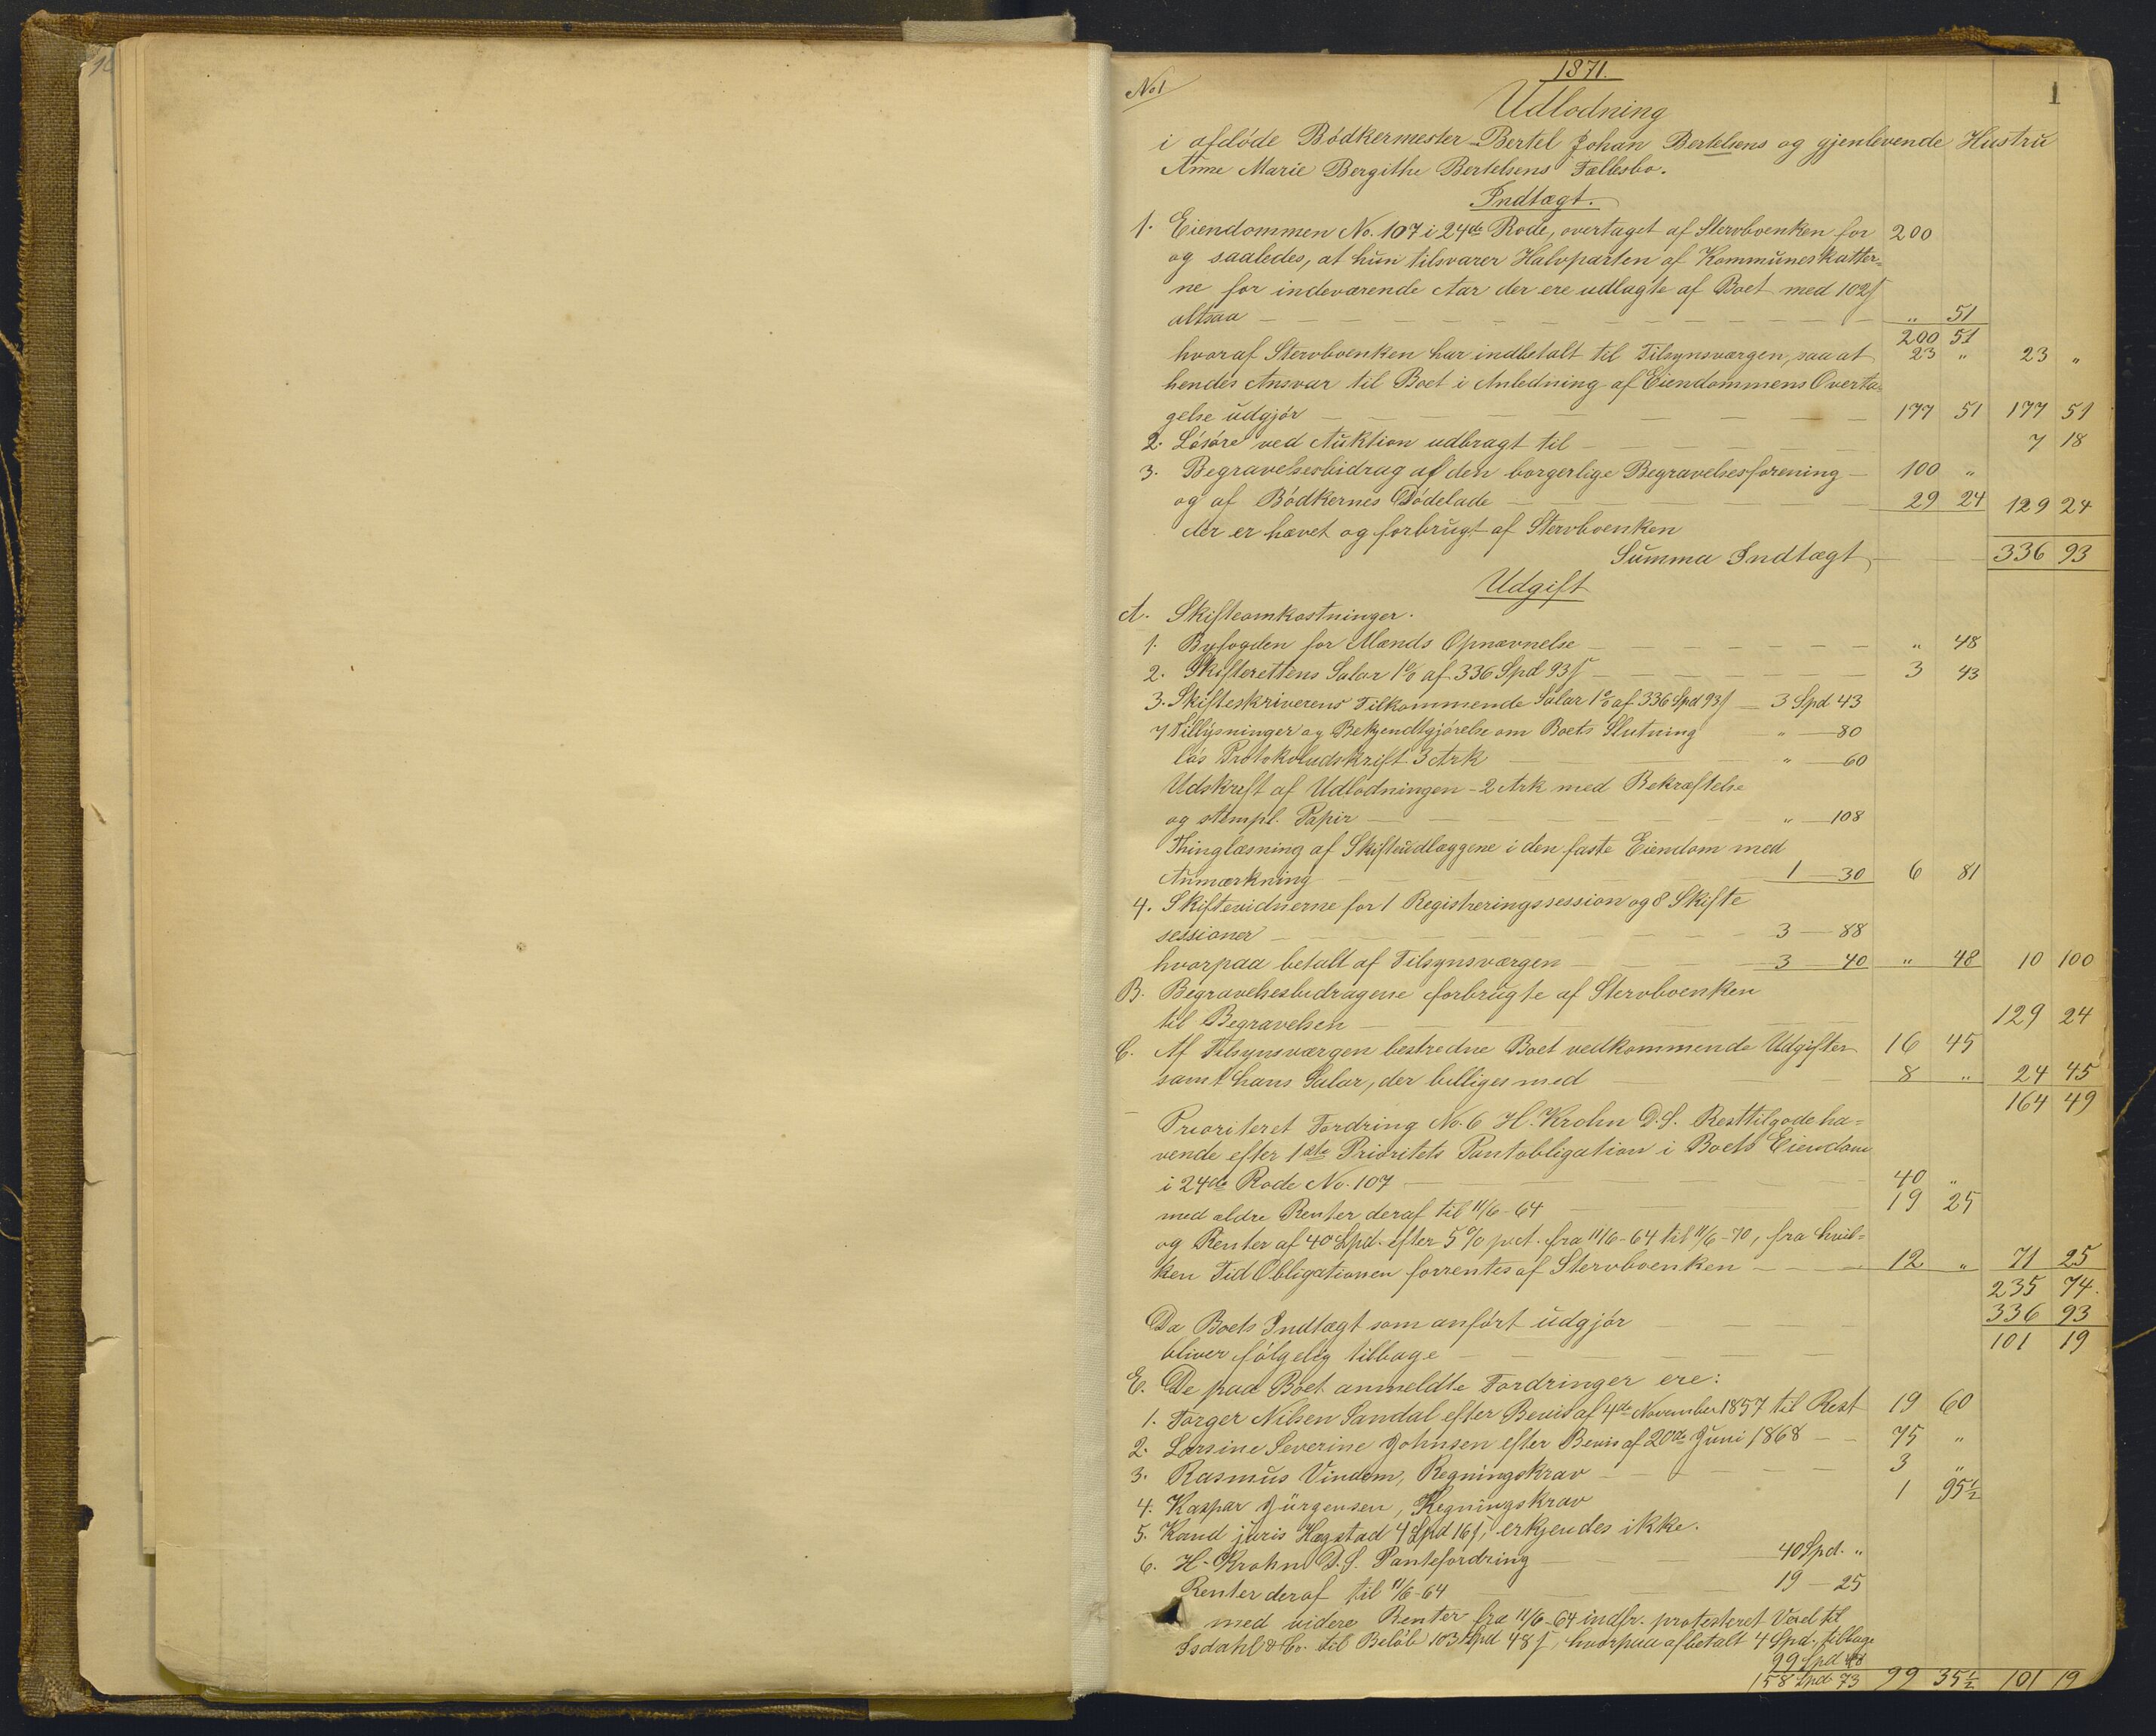 1871.
1
No 1
Udlodning
i afdøde Bødkermester Bertel Johan Bertelsens og gjenlevende Hustru
Anne Marie Bergithe Bertelsens Fællesbo.
Indtægt.
1. Eiendommen No. 107 i 24de Rode, overtaget af Stervboenken for 200
og saaledes, at hun tilsvarer Halvparten af Kommuneskatter=
ne for indeværende Aar der ere udlagte af Boet med 102ẞ
altsaa — „ 51
200 51
hvoraf Stervboenken har indbetalt til Tilsynsværgen, saa at 23 „ 23 „
hendes Ansvar til Boet i Anledning af Eiendommens Overta=
gelse udgjør — 177 51 177 51
2. Løsøre ved Auktion udbragt til — 7 18
3. Begravelsesbidrag af den borgerlige Begravelsesforening — 100 „
og af Bødkernes Dødelade — 29 24 129 24
der er hævet og forbrugt af Stervboenken
Summa Indtægt — 336 93
Udgift
A. Skifteomkostninger.
1. Byfogden for Mænds Opnævnelse — „ 48
2. Skifterettens Salær 1% af 336 Spd 93ẞ — 3 43
3. Skifteskriverens Tilkommende Salær 1% af 336 Spd 93ẞ — 3 Spd 43
7 Tillysninger og Bekjendtgjørelse om Boets Slutning — „ — 80
løs Protokoludskrift 3 Ark — „ — 60
Udskrift af Udlodningen - 2 Ark med Bekræftelse
og stempl. Papir — „ — 108
Thinglæsning af Skifteudlæggene i den faste Eiendom med
Anmærkning — 1 — 30 6 81
4. Skiftevidnerne for 1 Registreringssession og 8 Skifte
sessioner — 3 — 88
hvorpaa betalt af Tilsynsværgen — 3 — 40 „ 48 10 100
B. Begravelsesbidragene forbrugte af Stervboenken
til Begravelsen — 129 24
C. Af Tilsynsværgen bestredne Boet vedkommende Udgifter 16 45
samt hans Salær, der billiges med — 8 „ 24 45
164 49
Prioriteret Fordring No. 6 H. Krohn D.S. Resttilgodeha=
vende efter 1ste Prioritets Pantobligation i Boets Eiendom
i 24de Rode No. 107 — 40 „
med ældre Renter deraf til 11/6-64 19 25
og Renter af 40 Spd. efter 5% pct. fra 11/6-64 til 11/6-70, fra hvil=
ken Tid Obligationen forrentes af Stervboenken — 12 „ 71 25
235 74.
Da Boets Indtægt som anført udgjør — 336 93
bliver følgelig tilbage — 101 19
E. De paa Boet anmeldte Fordringer ere:
1. Torger Nilsen Sandal efter Bevis af 4de November 1857 til Rest 19 60
2. Larsine Severine Johnsen efter Bevis af 20de Juni 1868 — 75 „
3. Rasmus Vindem, Regningskrav — 3 „
4. Kaspar Jürgensen, Regningskrav 1 95½
5. Kand juris Hægstad 4 Spd 16ẞ, erkjendes ikke.
6. H. Krohn D.S. Pantefordring — 40 Spd. „
Renter deraf til 11/6-64 — 19 — 25
med videre Renter fra 11/6-64 indfr. protesteret Vexel til
Isdahl & Co. til Beløb 103 Spd 48ẞ, hvorpaa afbetalt 4 Spd, tilbage
99 Spd 48
158 Spd 73 99 35½ 101 19